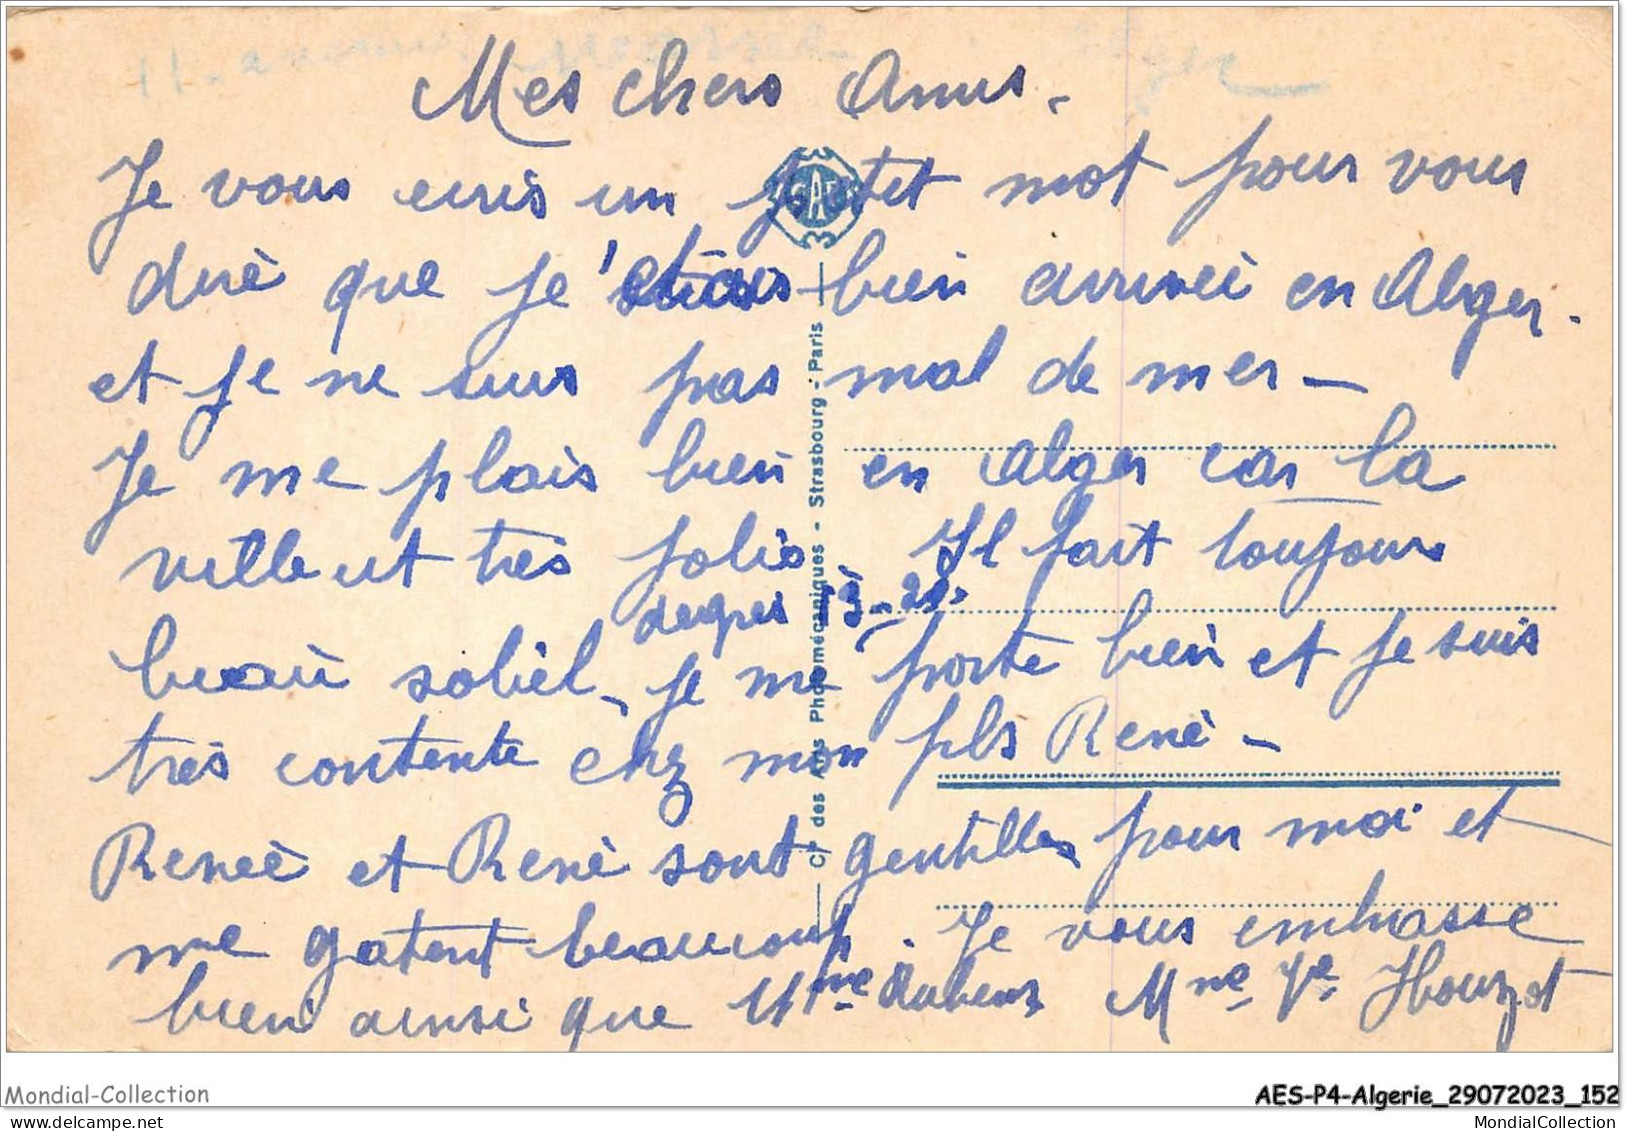 Mes chers Amis.
Je vous ecris un petit mot pour vous
dire que je suis bien arriveé en Alger.
et je ne suis pas mal de mer—
Je me plais bien en Alger car la
ville est très jolie Il fait toujours
degres 19-20.
beau soliel, je me porte bien et je suis
très contente chez mon fils René—
Reneé et René sont gentilles pour moi et
me gatent beaucoup. Je vous embrasse
bien ainsi que Mme Rubens Mme Ve Houzot
Cie des Arts Photomécaniques - Strasbourg - Paris
CAP
Mondial-Collection
AES-P4-Algerie_29072023_152
MondialCollection